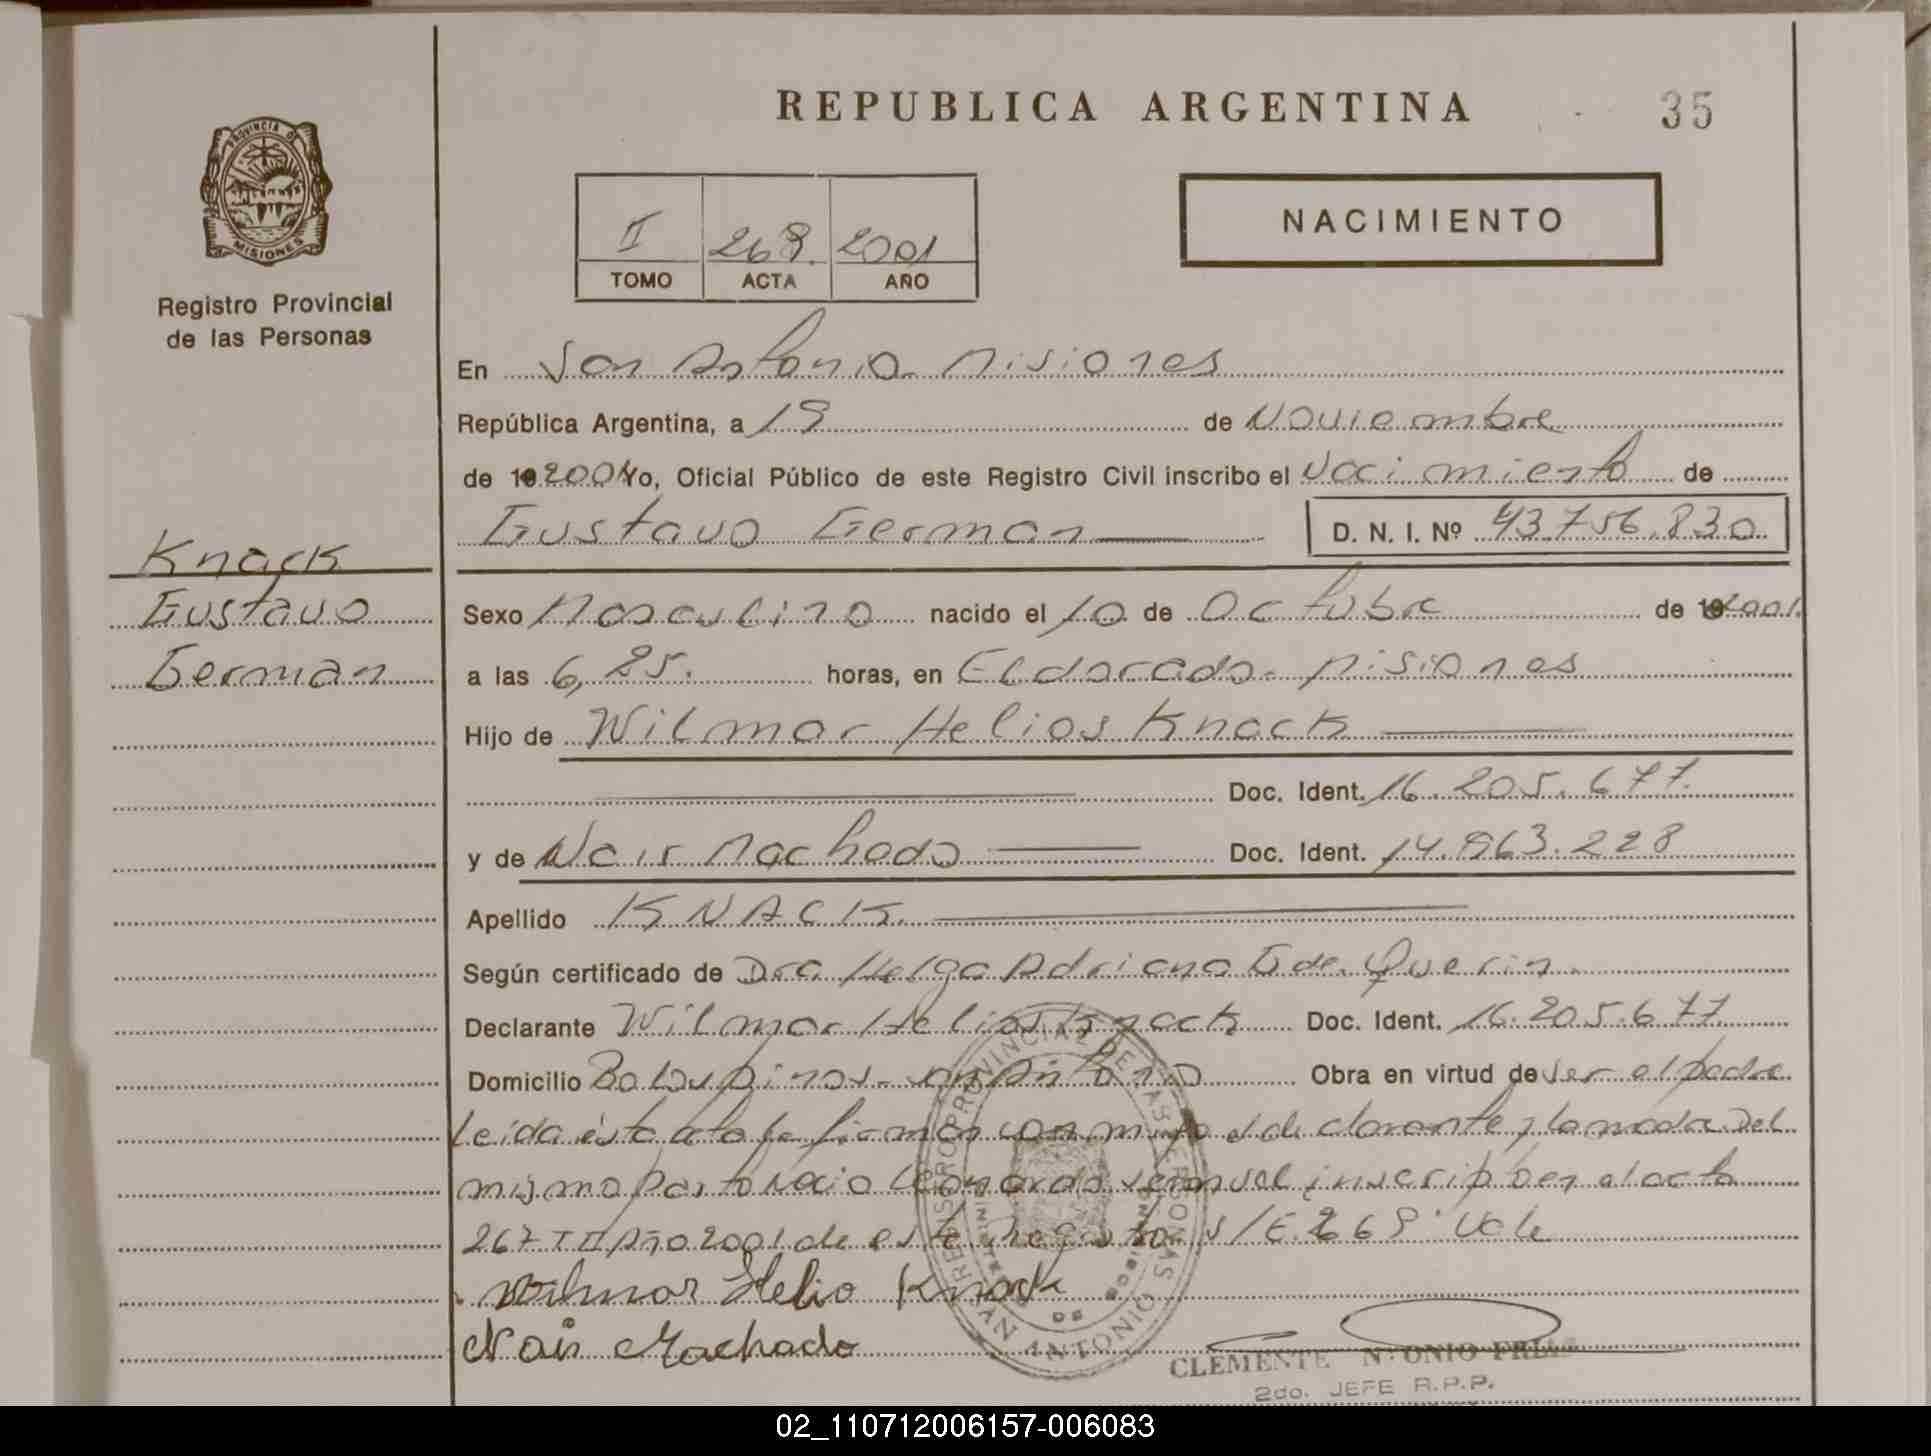 REPUBLICA ARGENTINA
35
PROVINCIA DE
MISIONES
Registro Provincial
de las Personas
II 268. 2001
TOMO ACTA AÑO
NACIMIENTO
En San Antonio Misiones
República Argentina, a 19 de Noviembre
de 19 2001 Yo, Oficial Público de este Registro Civil inscribo el Nacimiento de
Gustavo German D. N. I. Nº 43.756.830
Knack
Gustavo
German
Sexo Masculino nacido el 10 de Octubre de 19 2001.
a las 6,25. horas, en Eldorado - Misiones
Hijo de Wilmar Helios Knack
Doc. Ident. 16.205.677.
y de Nair Machado Doc. Ident. 14.963.228
Apellido KNACK.
Según certificado de Dra. Helga Adriana G de Querin.
Declarante Wilmar Helios Knack Doc. Ident. 16.205.677
Domicilio San Antonio Obra en virtud de ser el padre
Leida ésta acta la firman conmigo el declarante y la madre Del
mismo parto Nacio inscripto en el acta
267 T II Año 2001 de este registro S/E. 268 Vale
Wilmar Helio Knack
Nair Machado
REGISTRO PROVINCIAL DE LAS PERSONAS
SAN ANTONIO
CLEMENTE
2do. JEFE R.P.P.
02_110712006157-006083